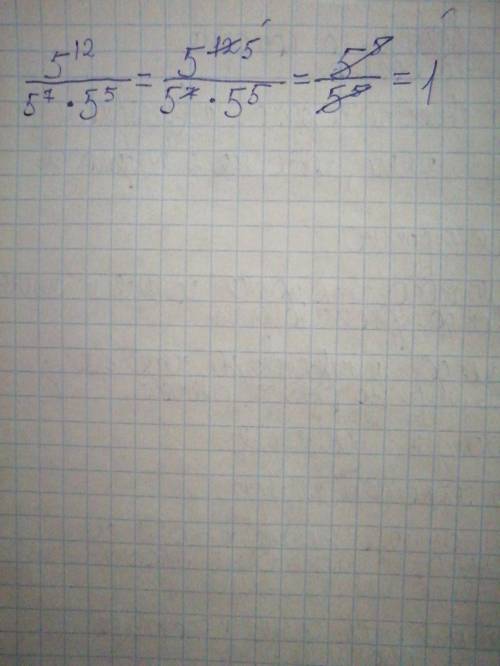 5^12 / (5^7 · 5^5) = 5^12 5 / (5^7 · 5^5) = 5^5 / 5^5 = 1